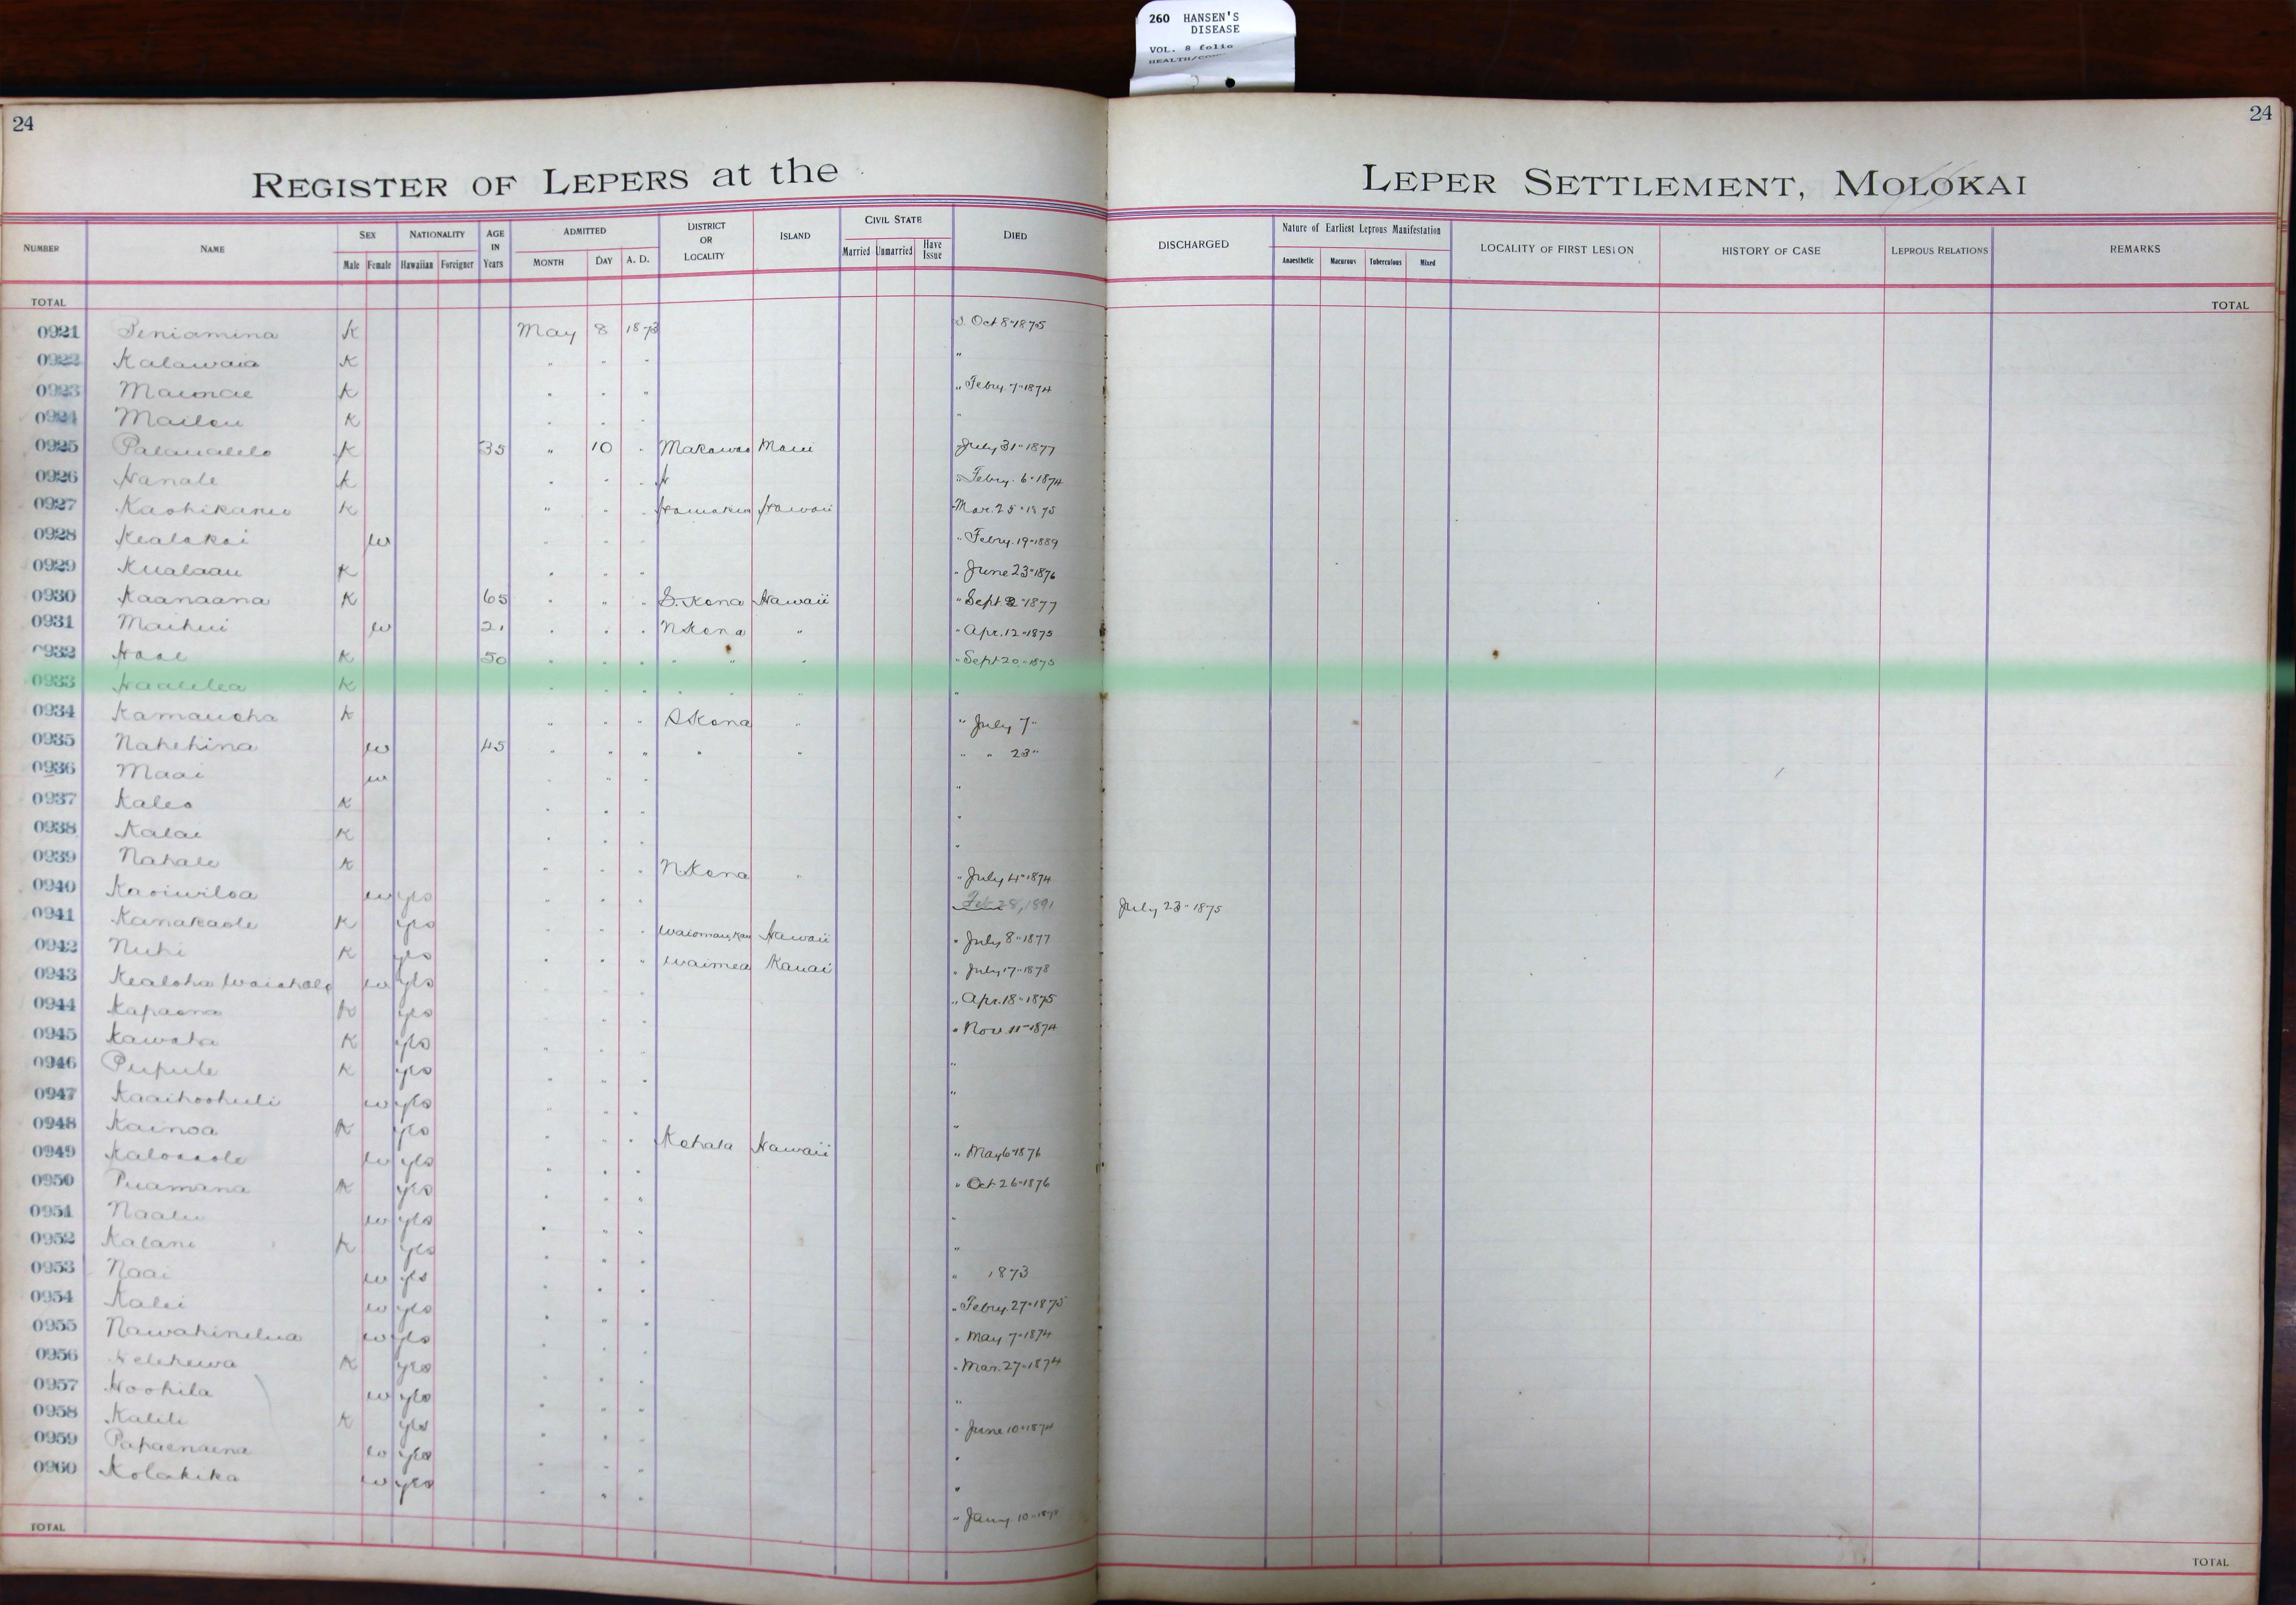 260 HANSEN'S
DISEASE
VOL. 8 folio
24
24
REGISTER OF LEPERS at the LEPER SETTLEMENT, MOLOKAI
NUMBER NAME SEX NATIONALITY AGE IN Years ADMITTED DISTRICT OR LOCALITY ISLAND CIVIL STATE DIED DISCHARGED Nature of Earliest Leprous Manifestation LOCALITY OF FIRST LESION HISTORY OF CASE LEPROUS RELATIONS REMARKS
Male Female Hawaiian Foreigner MONTH DAY A. D. Married Unmarried Have Issue Anaesthetic Macurous Tuberculous Mixed
TOTAL TOTAL
0921 Peniamina K May 8 1873 Oct 8 " 1875
0922 Kalawaia K " " " "
0923 K " " " " Febry. 7 " 1874
0924 Mailou K " " " "
0925 Palaualelo K 35 " 10 " Makawao Maui July 31 " 1877
0926 Hanale K " " " " Febry. 6 " 1874
0927 K " " " Hamakua Hawaii Mar. 25 " 1875
0928 Kealakai w " " " " Febry. 19 " 1889
0929 Kualaau K " " " " June 23 " 1876
0930 Kaanaana K 65 " " " S. Kona Hawaii " Sept 2 " 1877
0931 Maihui w 21 " " " N Kona " " Apr. 12 " 1875
0932 K 50 " " " " " " " Sept 20 " 1875
0933 Haalelea K " " " " " "
0934 Kamauoha K " " " S Kona " " July 7 "
0935 Nahehina w 45 " " " " " " " 23 "
0936 Maai w " " " "
0937 Kaleo K " " " "
0938 Kalai K " " " "
0939 Nahale K " " " N Kona " " July 4 " 1874
0940 Kaoiwiloa w yes " " " Feb 28, 1891 July 23 " 1875
0941 Kanakaole K yes " " " Hawaii " July 8 " 1877
0942 Nuhi K yes " " " Waimea Kauai " July 17 " 1878
0943 Kealoha w yes " " " " Apr. 18 " 1875
0944 Kapaona K yes " " " " Nov. 11 " 1874
0945 Kawaha K yes " " " "
0946 Pupule K yes " " " "
0947 Kaaihoohuli w yes " " " "
0948 Kainoa K yes " " " Kohala Hawaii " May 6 " 1876
0949 w yes " " " " Oct 26 " 1876
0950 Puamana K yes " " " "
0951 Naalu w yes " " " "
0952 Kalani K yes " " " " 1873
0953 Naai w yes " " " " Febry. 27 " 1875
0954 Kalei w yes " " " " May 7 " 1874
0955 Nawahinelua w yes " " " " Mar. 27 " 1874
0956 K yes " " " "
0957 Hoohila w yes " " " " June 10 " 1874
0958 Kalili K yes " " " "
0959 Papaenaena w yes " " " "
0960 Kolakika w yes " " " " Jany. 10 "
TOTAL TOTAL